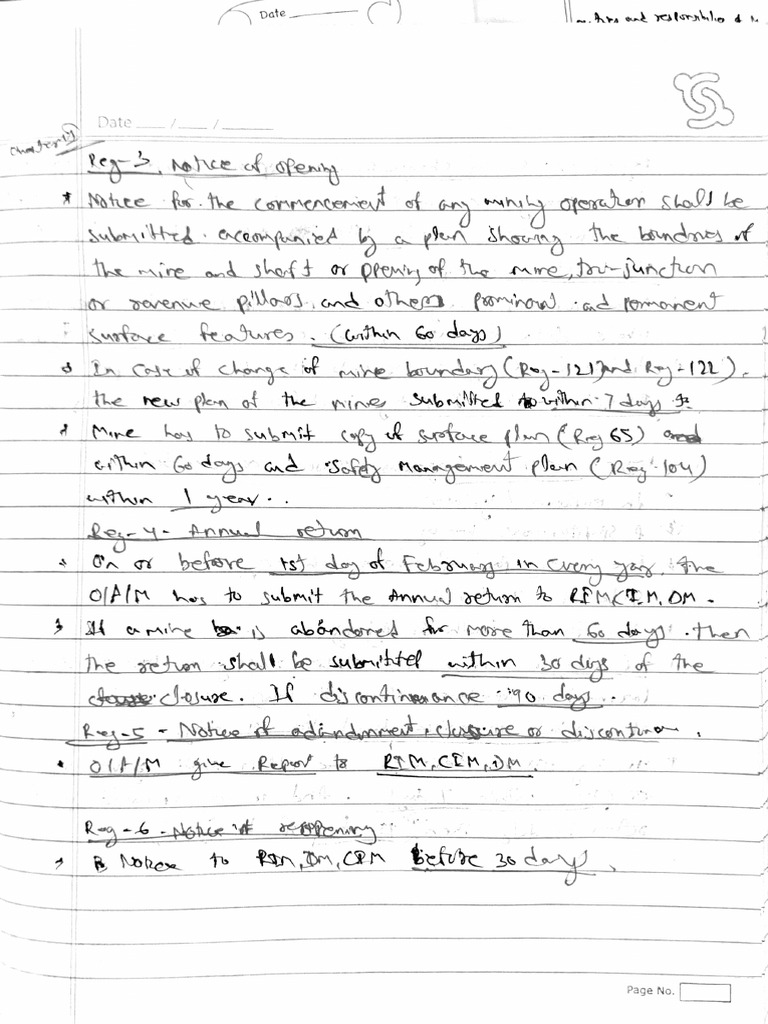 Date
and responsibilites of
Date __ / __ / __
Chapter
Reg-3. Notice of opening
* Notice for the commencement of any mining operation shall be
submitted accompanied by a plan showing the boundries of
the mine and shaft or opening of the mine, tri-junction
or revenue pillars, and others prominant and permanent
surface features. (within 60 days)
In case of change of mine boundary (Reg-121) and Reg-122).
the new plan of the mines submitted within 7 days
Mine has to submit copy of surface plan (Reg 65)
within 60 days and safety Management plan (Reg-104)
within 1 year..
Reg-4- Annual return
On or before 1st day of February in every year, the
O/A/M has to submit the Annual return to RIM, CIM, DM.
If a mine is abandored for more than 60 days. then
the return shall be submitted within 30 days of the
closure. If discontinuance 90 days..
Reg-5 - Notice of abandonment, closure or discontinu
O/A/M give Report to RIM, CIM, DM.
Reg-6- Notice of reopening
Notice to RIM, DM, CIM before 30 days.
Page No.